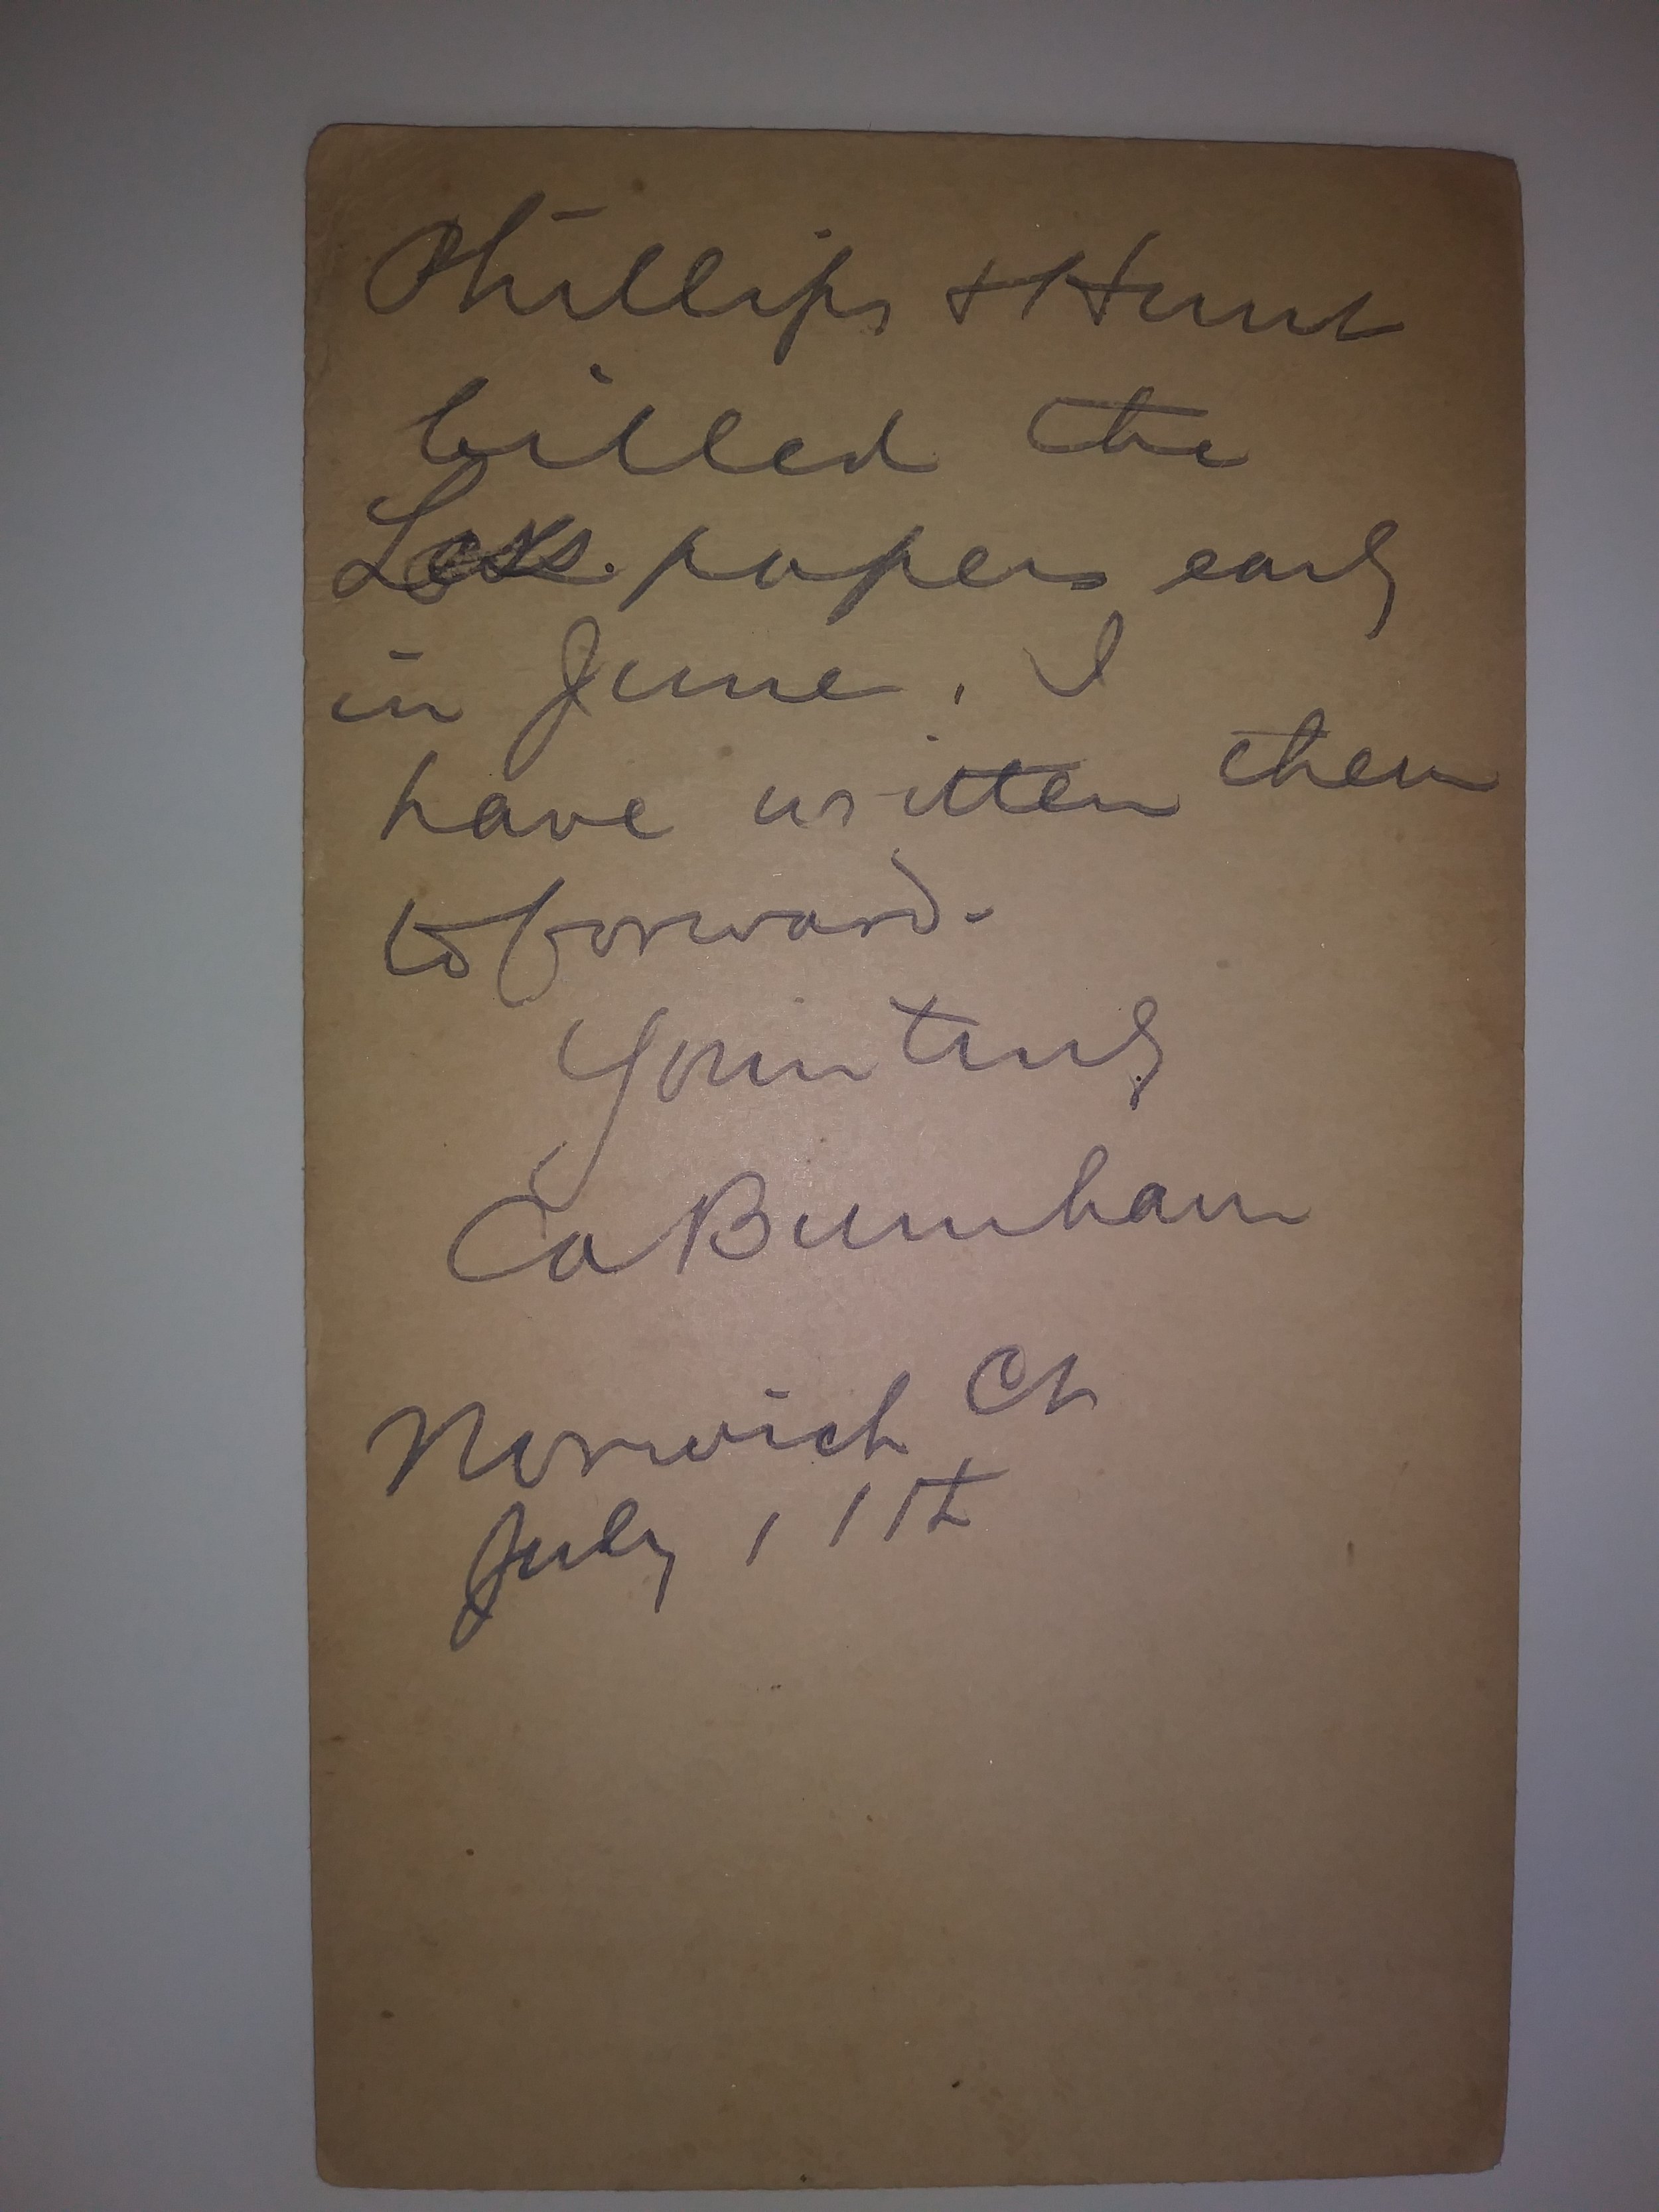 Phillips & Hunt
billed the
papers early
in June. I
have written them
to forward.
Yours truly
Burnham
Norwich Ct
July 11th